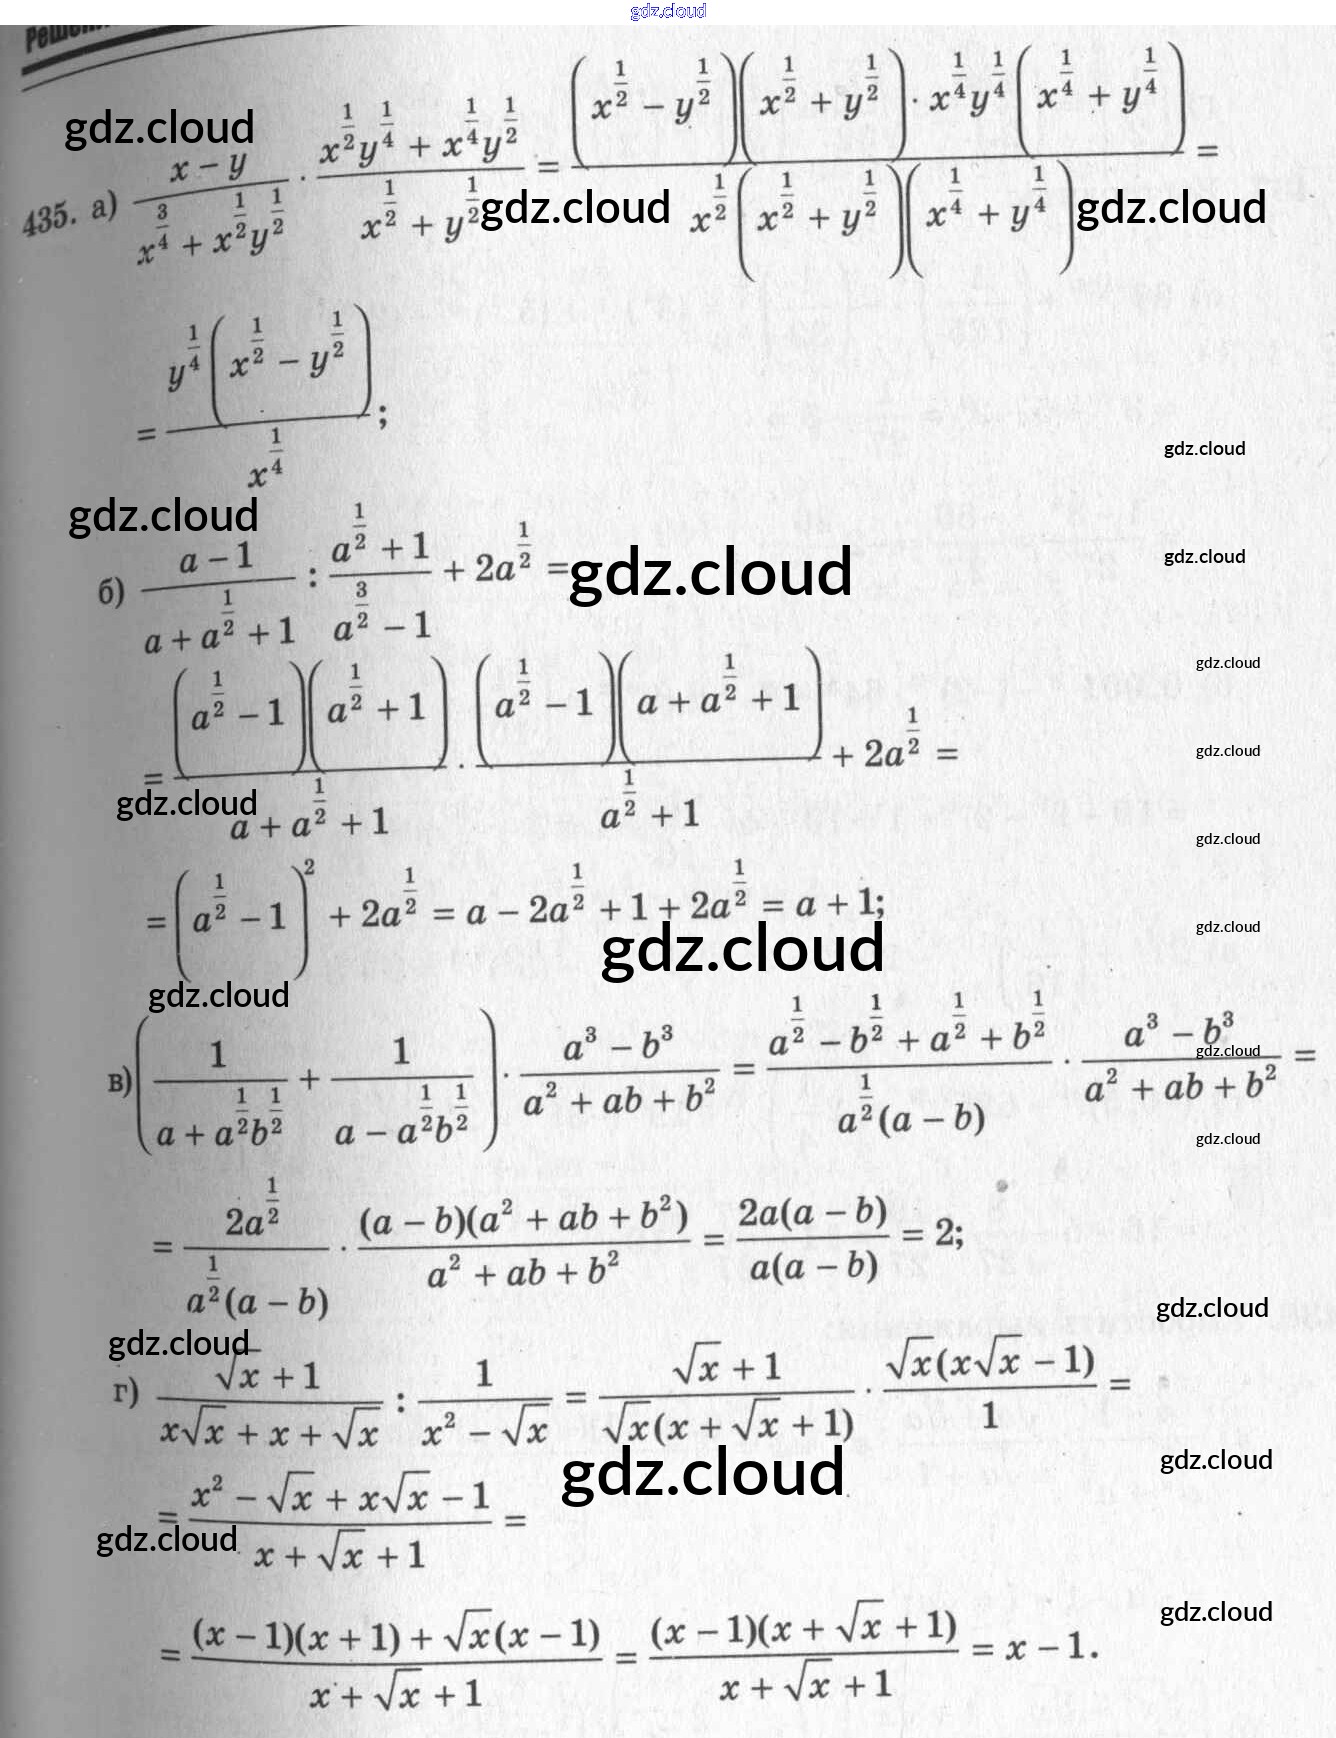 gdz.cloud
gdz.cloud
435. а) \frac{x-y}{x^{\frac{3}{4}}+x^{\frac{1}{2}}y^{\frac{1}{2}}} \cdot \frac{x^{\frac{1}{2}}y^{\frac{1}{4}}+x^{\frac{1}{4}}y^{\frac{1}{2}}}{x^{\frac{1}{2}}+y^{\frac{1}{2}}} = \frac{(x^{\frac{1}{2}}-y^{\frac{1}{2}})(x^{\frac{1}{2}}+y^{\frac{1}{2}}) \cdot x^{\frac{1}{4}}y^{\frac{1}{4}}(x^{\frac{1}{4}}+y^{\frac{1}{4}})}{x^{\frac{1}{2}}(x^{\frac{1}{2}}+y^{\frac{1}{2}})(x^{\frac{1}{4}}+y^{\frac{1}{4}})} =
gdz.cloud gdz.cloud
= \frac{y^{\frac{1}{4}}(x^{\frac{1}{2}}-y^{\frac{1}{2}})}{x^{\frac{1}{4}}};
gdz.cloud
gdz.cloud
gdz.cloud
б) \frac{a-1}{a+a^{\frac{1}{2}}+1} : \frac{a^{\frac{1}{2}}+1}{a^{\frac{3}{2}}-1} + 2a^{\frac{1}{2}} =
gdz.cloud
gdz.cloud
= \frac{(a^{\frac{1}{2}}-1)(a^{\frac{1}{2}}+1)}{a+a^{\frac{1}{2}}+1} \cdot \frac{(a^{\frac{1}{2}}-1)(a+a^{\frac{1}{2}}+1)}{a^{\frac{1}{2}}+1} + 2a^{\frac{1}{2}} =
gdz.cloud
gdz.cloud
gdz.cloud
= (a^{\frac{1}{2}}-1)^2 + 2a^{\frac{1}{2}} = a - 2a^{\frac{1}{2}} + 1 + 2a^{\frac{1}{2}} = a + 1;
gdz.cloud
gdz.cloud
gdz.cloud
в) (\frac{1}{a+a^{\frac{1}{2}}b^{\frac{1}{2}}} + \frac{1}{a-a^{\frac{1}{2}}b^{\frac{1}{2}}}) \cdot \frac{a^3-b^3}{a^2+ab+b^2} = \frac{a^{\frac{1}{2}}-b^{\frac{1}{2}}+a^{\frac{1}{2}}+b^{\frac{1}{2}}}{a^{\frac{1}{2}}(a-b)} \cdot \frac{a^3-b^3}{a^2+ab+b^2} =
gdz.cloud
gdz.cloud
= \frac{2a^{\frac{1}{2}}}{a^{\frac{1}{2}}(a-b)} \cdot \frac{(a-b)(a^2+ab+b^2)}{a^2+ab+b^2} = \frac{2a(a-b)}{a(a-b)} = 2;
gdz.cloud
gdz.cloud
г) \frac{\sqrt{x}+1}{x\sqrt{x}+x+\sqrt{x}} : \frac{1}{x^2-\sqrt{x}} = \frac{\sqrt{x}+1}{\sqrt{x}(x+\sqrt{x}+1)} \cdot \frac{\sqrt{x}(x\sqrt{x}-1)}{1} =
gdz.cloud
gdz.cloud
= \frac{x^2-\sqrt{x}+x\sqrt{x}-1}{x+\sqrt{x}+1} =
gdz.cloud
gdz.cloud
= \frac{(x-1)(x+1)+\sqrt{x}(x-1)}{x+\sqrt{x}+1} = \frac{(x-1)(x+\sqrt{x}+1)}{x+\sqrt{x}+1} = x - 1.